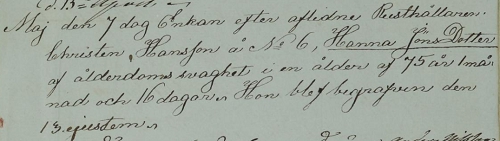 d. 13
Maj den 7 dag Enkan efter aflidne Rusthållaren
Christen Hansson å No 6, Hanna Jöns Dotter
af ålderdoms svaghet i en ålder af 75 år 1 må,,
nad och 16 dagar. Hon blef begrafven den
13 ejusdem.